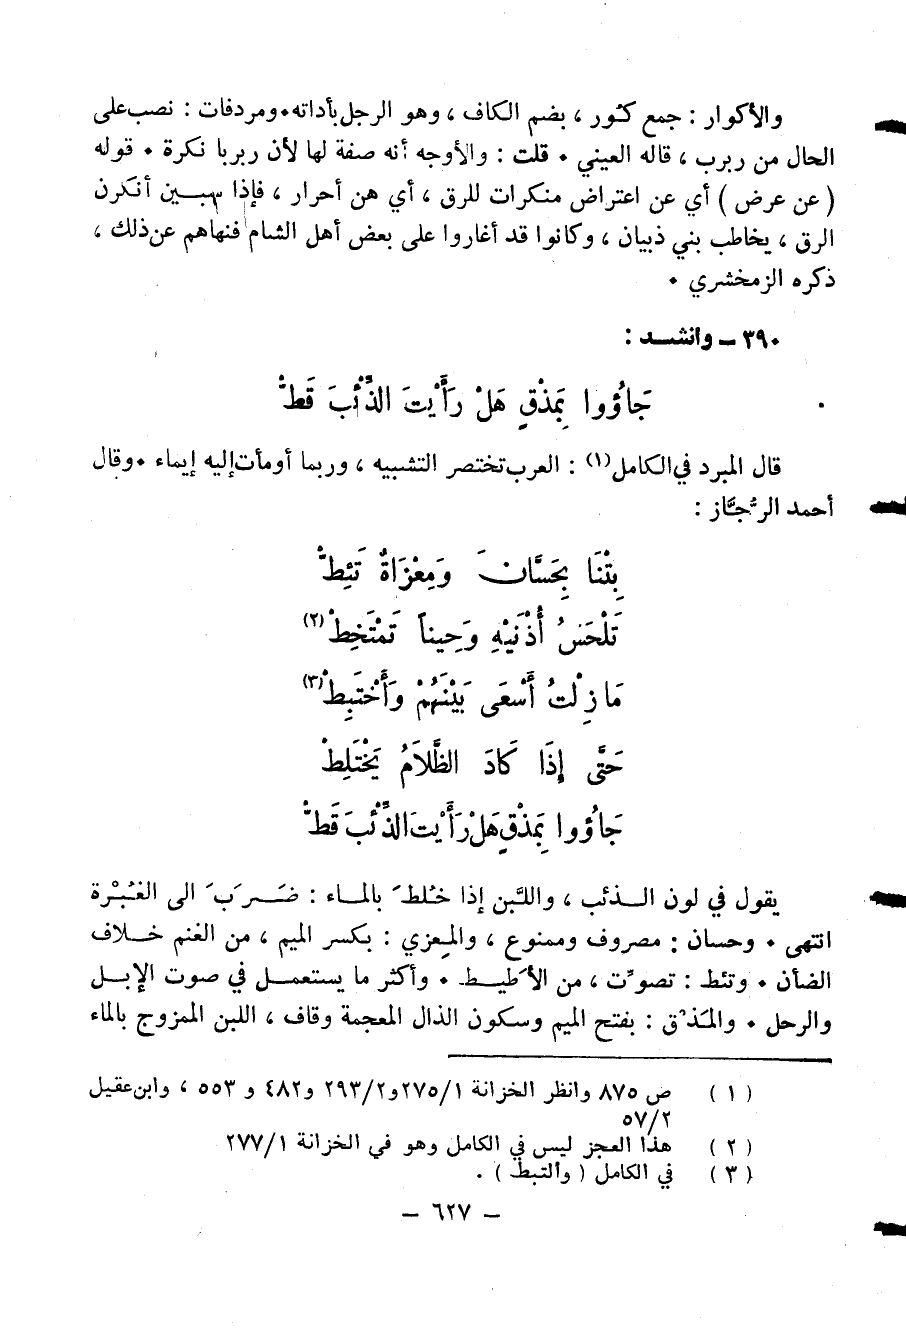 والأكوار : جمع كُور ، بضم الكاف ، وهو الرجل بأداته • ومردفات : نصب على
الحال من ربرب ، قاله العيني • قلت : والأوجه أنه صفة لها لأن ربربا نكرة • قوله
( عن عرض ) أي عن اعتراض منكرات للرق ، أي هن أحرار ، فإذا سبين أنكرن
الرق ، يخاطب بني ذبيان ، وكانوا قد أغاروا على بعض أهل الشام فنهاهم عن ذلك ،
ذكره الزمخشري •
٣٩٠ – وانشد :
جَاؤُوا بِمَذْقٍ هَلْ رَأَيْتَ الذِّئْبَ قَطّْ
قال المبرد في الكامل(١) : العرب تختصر التشبيه ، وربما أومأت إليه إيماء • وقال
أحمد الرُّجَّاز :
بِتْنَا بِحَسَّانَ وَمِعْزَاهُ تَئِطّْ
تَلْحَسُ أُذْنَيْهِ وَحِيناً تَمْتَخِطْ(٢)
مَا زِلْتُ أَسْعَى بَيْنَهُمْ وَأَخْتَبِطْ(٣)
حَتَّى إِذَا كَادَ الظَّلَامُ يَخْتَلِطْ
جَاؤُوا بِمَذْقٍ هَلْ رَأَيْتَ الذِّئْبَ قَطّْ
يقول في لون الذئب ، واللَّبن إذا خُلطَ بالماء : ضَرَبَ الى الغُبْرة
انتهى • وحسان : مصروف وممنوع ، والمِعزي : بكسر الميم ، من الغنم خلاف
الضأن • وتئط : تصوِّت ، من الأَطيط • وأكثر ما يستعمل في صوت الإبل
والرحل • والمَذْق : بفتح الميم وسكون الذال المعجمة وقاف ، اللبن الممزوج بالماء
( ١ ) ص ٨٧٥ وانظر الخزانة ٢٧٥/١ و٢٩٣/٢ و٤٨٢ و ٥٥٣ ، وابن عقيل
٥٧/٢
( ٢ ) هذا العجز ليس في الكامل وهو في الخزانة ٢٧٧/١
( ٣ ) في الكامل ( والتبط ) .
– ٦٢٧ –